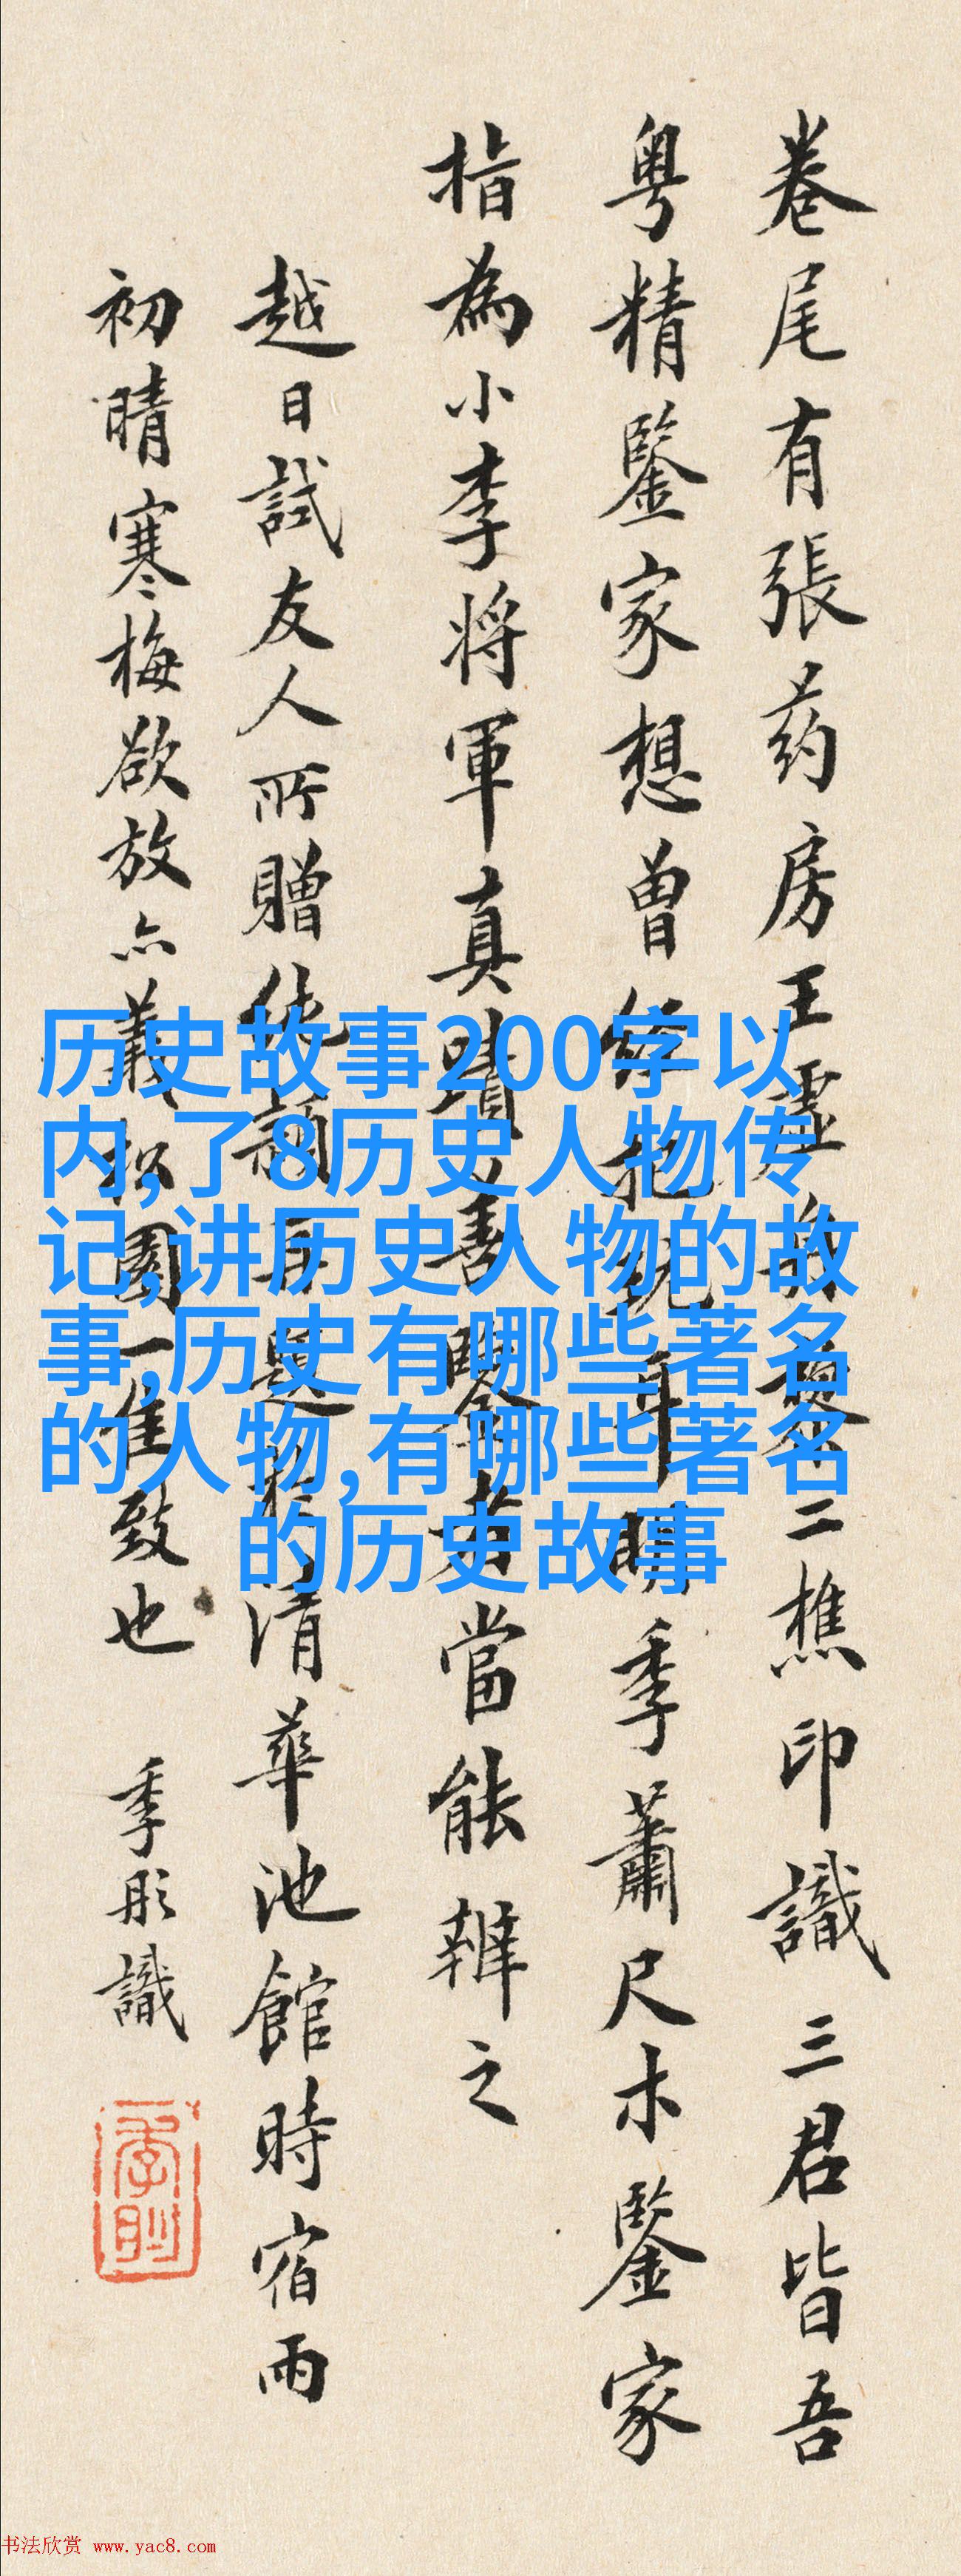 卷尾有張药房王虛舟黎二樵印識三君皆吾
粤精鑒家想曾經把玩耳明季蕭尺木鑒家
指為小李將軍真蹟善鑒者當能辨之
越日試友人所贈
清華池館時宿雨
初晴寒梅欲放亦
園一佳致也 季彤識
历史故事200字以
内,了8历史人物传
记,讲历史人物的故
事,历史有哪些著名
的人物,有哪些著名
的历史故事
书法欣赏 www.yac8.com